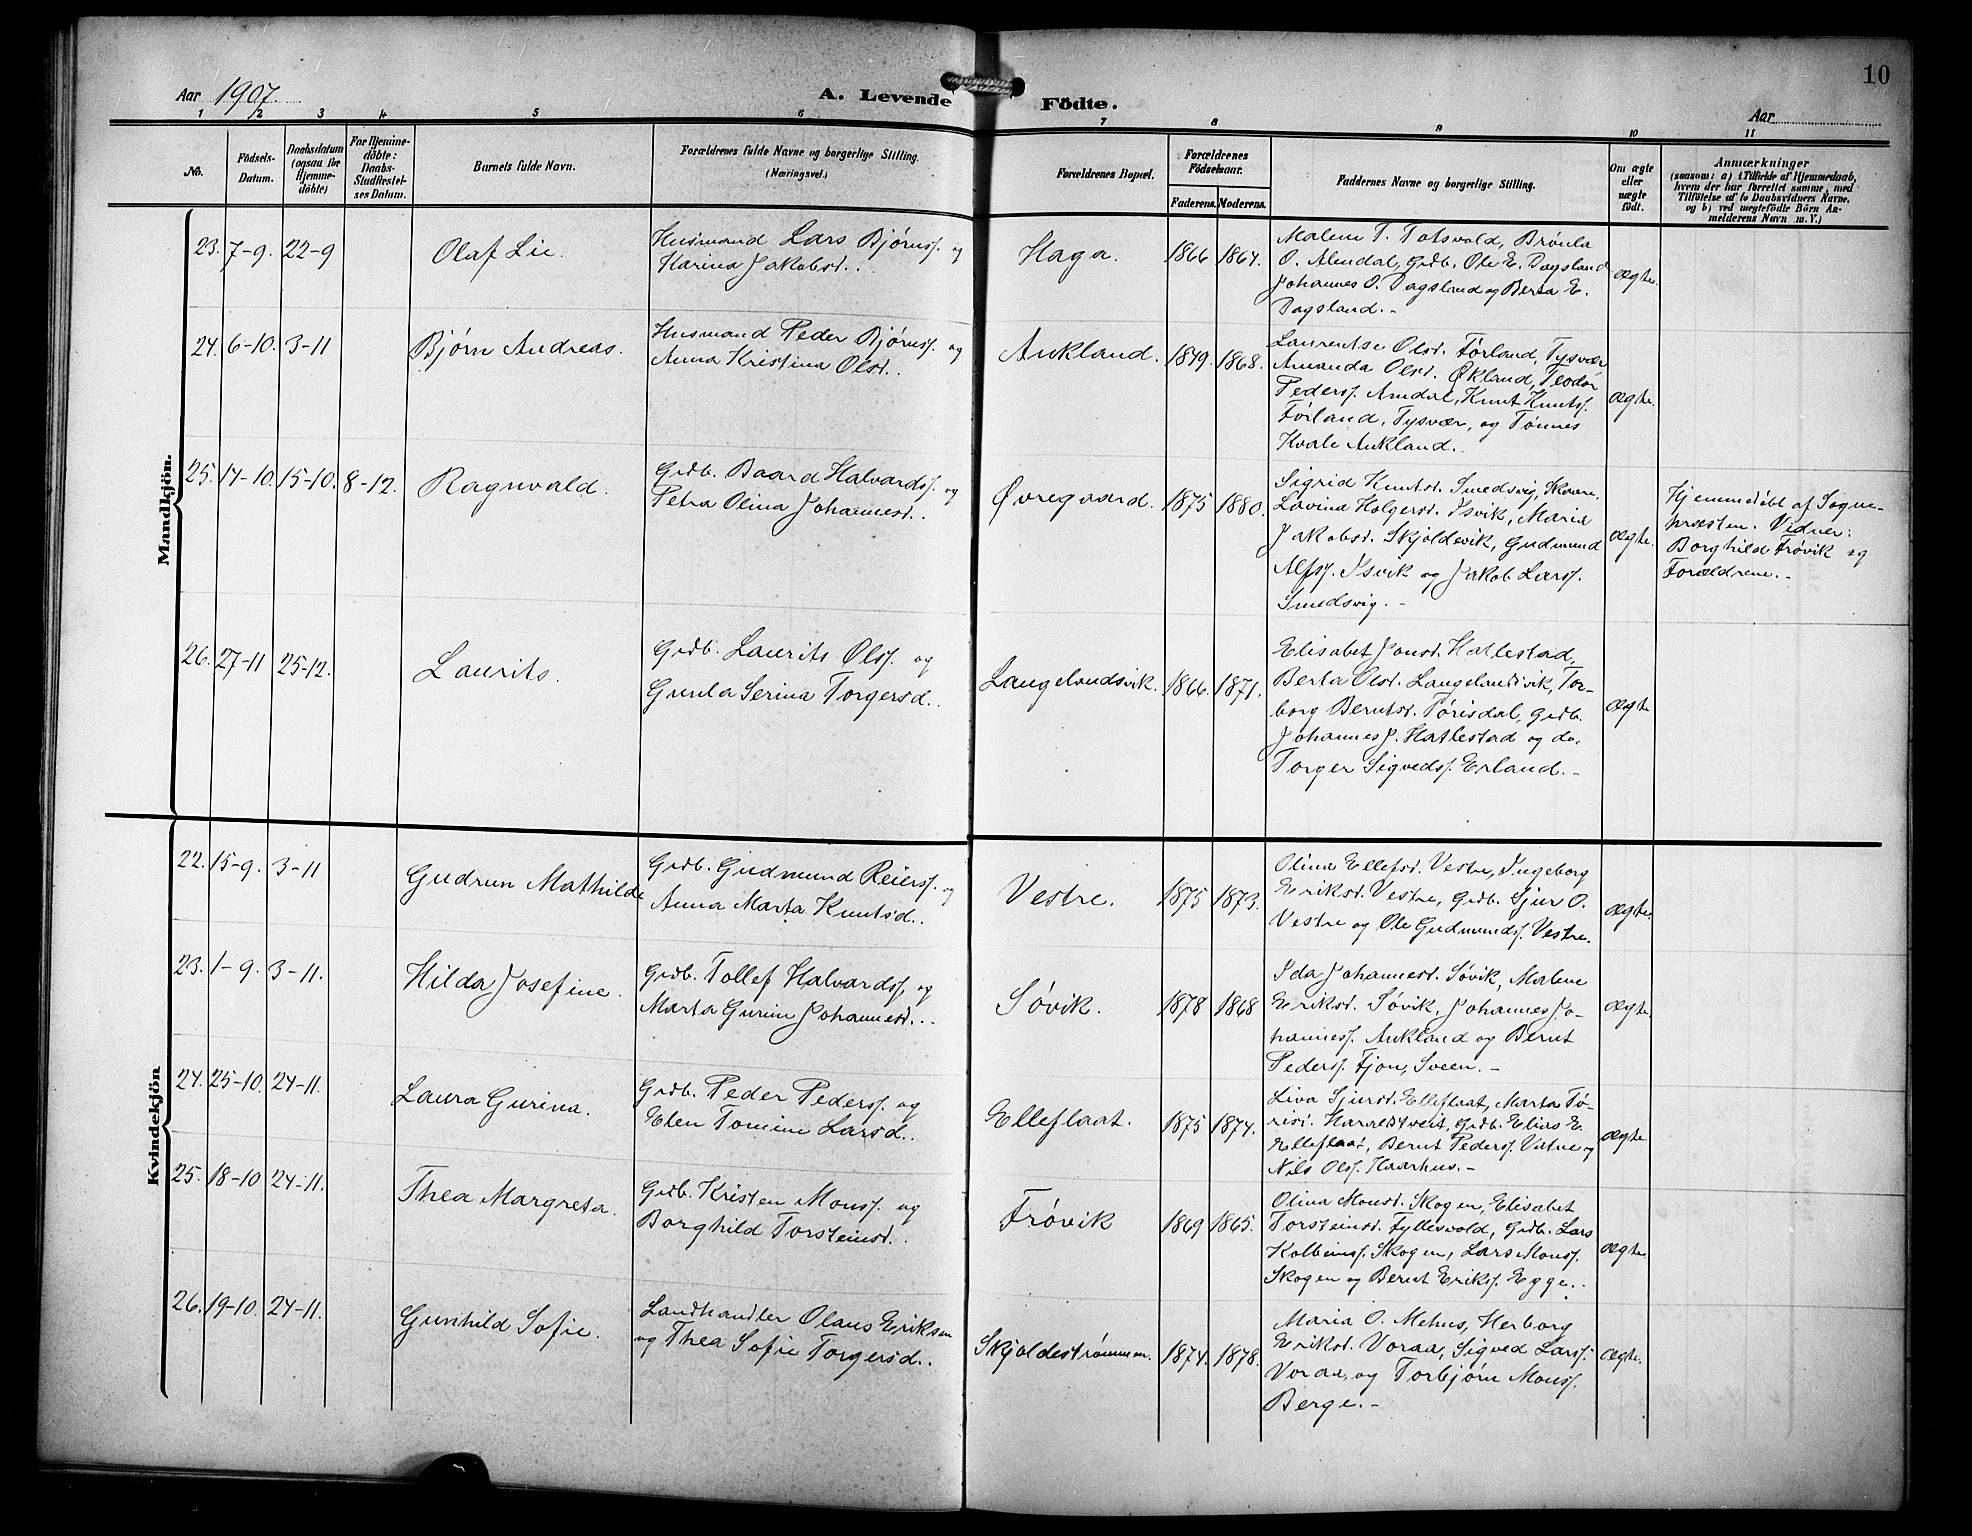 10
Aar 1907.
A. Levende Födte.
Aar
1 2 3 4 5 6 7 8 9 10 11
No.
Födsels-
Datum.
Daabsdatum
(ogsaa for
Hjemme-
döbte)
For Hjemme-
döbte:
Daabs-
Stadfæstel-
ses Datum.
Barnets fulde Navn.
Forældrenes fulde Navne og borgerlige Stilling.
(Næringsvei.)
Forældrenes Bopæl.
Forældrenes
Födselsaar.
Faderens.
Moderens.
Faddernes Navne og borgerlige Stilling.
Om ægte
eller
uægte
födt.
Anmærkninger
(saasom: a) i Tilfælde af Hjemmedaab,
hvem der har forrettet samme, med
Tilföielse af to Daabsvidners Navne.
og b) ved uægtefödte Börn An-
melderens Navn m. V.)
Mandkjön.
23. 7-9. 22-9
Olaf Lie.
Husmand Lars Bjørnss. og
Karina Jakobsd..
Haga.
1866 1864.
Malene T. Totsvold, Brønla
O. Alendal, Grdb. Ole E. Dagsland
Johannes O. Dagsland og Berta E.
Dagsland.-
ægte.
24. 6-10. 3-11
Bjørn Andreas.
Husmand Peder Bjørnss. og
Anna Kristina Olsd..
Aukland.
1849. 1868.
Laurentse Olsd. Førland, Tysvær
Amanda Olsd. Økland, Teodor
Peders. Amdal, Knut Knuts.
Førland, Tysvær, og Tønnes
Kvale Aukland..
ægte.
25. 14-10. 15-10. 8-12.
Ragnvald.
Grdb. Baard Halvards. og
Petra Olina Johannesd..
Øvregaard.
1875 1880.
Sigrid Knutsd. Smedsvig, Skaare.
Lavina Holgersd. Isvik, Maria
Jakobsd. Skjoldevik, Gudmund
Alfs. Isvik og Jakob Larss.
Smedsvig.-
ægte.
Hjemmedøbt af Sogne-
præsten. Vidner:
Borghild Frøvik og
Forældrene.-
26. 27-11 25-12.
Laurits.
Grdb. Laurits Olss. og
Gunla Serina Torgersd..
Langelandsvik.
1866. 1871.
Elisabet Jonsd. Hatlestad,
Berta Olsd. Langelandsvik, Tor-
borg Berntsd. Tørisdal, Grdb.
Johannes J. Hatlestad og do.
Torger Sigveds. Erland.-
ægte
Kvindekjön
22. 15-9. 3-11
Gudrun Mathilde
Grdb. Gudmund Reierss. og
Anna Marta Knutsd..
Vestre.
1875 1873.
Olina Ellefsd. Vestre, Ingeborg
Eriksd. Vestre, Grdb. Sjur O.
Vestre og Ole Gudmunds. Vestre.
ægte.
23. 1-9. 3-11.
Hilda Josefine.
Grdb. Tollef Halvards. og
Marta Gurine Johannesd..
Søvik.
1878 1868
Ida Johannesd. Søvik, Malene
Eriksd. Søvik, Johannes Jo-
hanness. Aukland og Bernt
Peders. Fjon, Sveen.-
ægte.
24. 25-10. 24-11.
Laura Gurina.
Grdb. Peder Peders. og
Elen Tomine Larsd..
Elleflaat.
1875 1874.
Liva Sjursd. Elleflaat, Marta Tø-
risd. Haraldstveit, Grdb. Elias E.
Elleflaat, Bernt Peders. Vatne og
Nils Olss. Haarhus.-
ægte
25. 18-10 24-11.
Thea Margreta.
Grdb. Kristen Monss. og
Borghild Torsteinsd..
Frøvik
1869 1865.
Olina Monsd. Skogen, Elisabet
Torsteinsd. Fyllesvold, Grdb. Lars
Kolbeinss. Skogen, Lars Monss.
Skogen og Bernt Eriks. Egge..
ægte.
26. 19-10. 24-11.
Gunhild Sofie.
Landhandler Olaus Eriksen
og Thea Sofie Torgersd..
Skjoldestrømmen.
1874. 1878.
Maria O. Mehus, Herborg
Eriksd. Voraa, Sigved Larss.
Voraa, og Torbjørn Monss.
Berge.-
ægte.